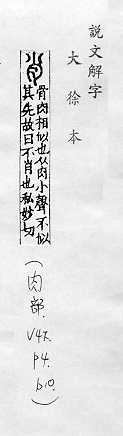 説文解字
大徐本
骨肉相似也从肉小聲不似
其先故曰不肖也私妙切
(肉部.
V4下.
P4.
b10.)